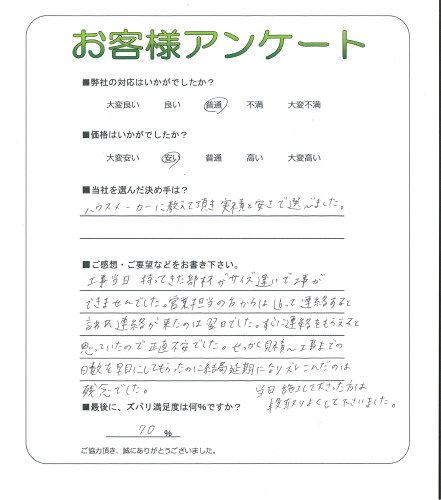 お客様アンケート
■弊社の対応はいかがでしたか?
大変良い 良い 普通 不満 大変不満
■価格はいかがでしたか?
大変安い 安い 普通 高い 大変高い
■当社を選んだ決め手は?
ハウスメーカーに教えて頂き 実績と安さで選びました。
■ご感想・ご要望などをお書き下さい。
工事当日 持ってきた部材がサイズ違いで工事が
できませんでした。営業担当の方からは 追って連絡すると
言われ 連絡が来たのは翌日でした。すぐに連絡をもらえると
思っていたので正直不安でした。せっかく見積り、工事までの
日数を早目にしてもらったのに結局延期になりズレこんだのは
残念でした。
当日 施工して下さった方は
段取りよくして下さいました。
■最後に、ズバリ満足度は何%ですか?
70 %
ご協力頂き、誠にありがとうございました。